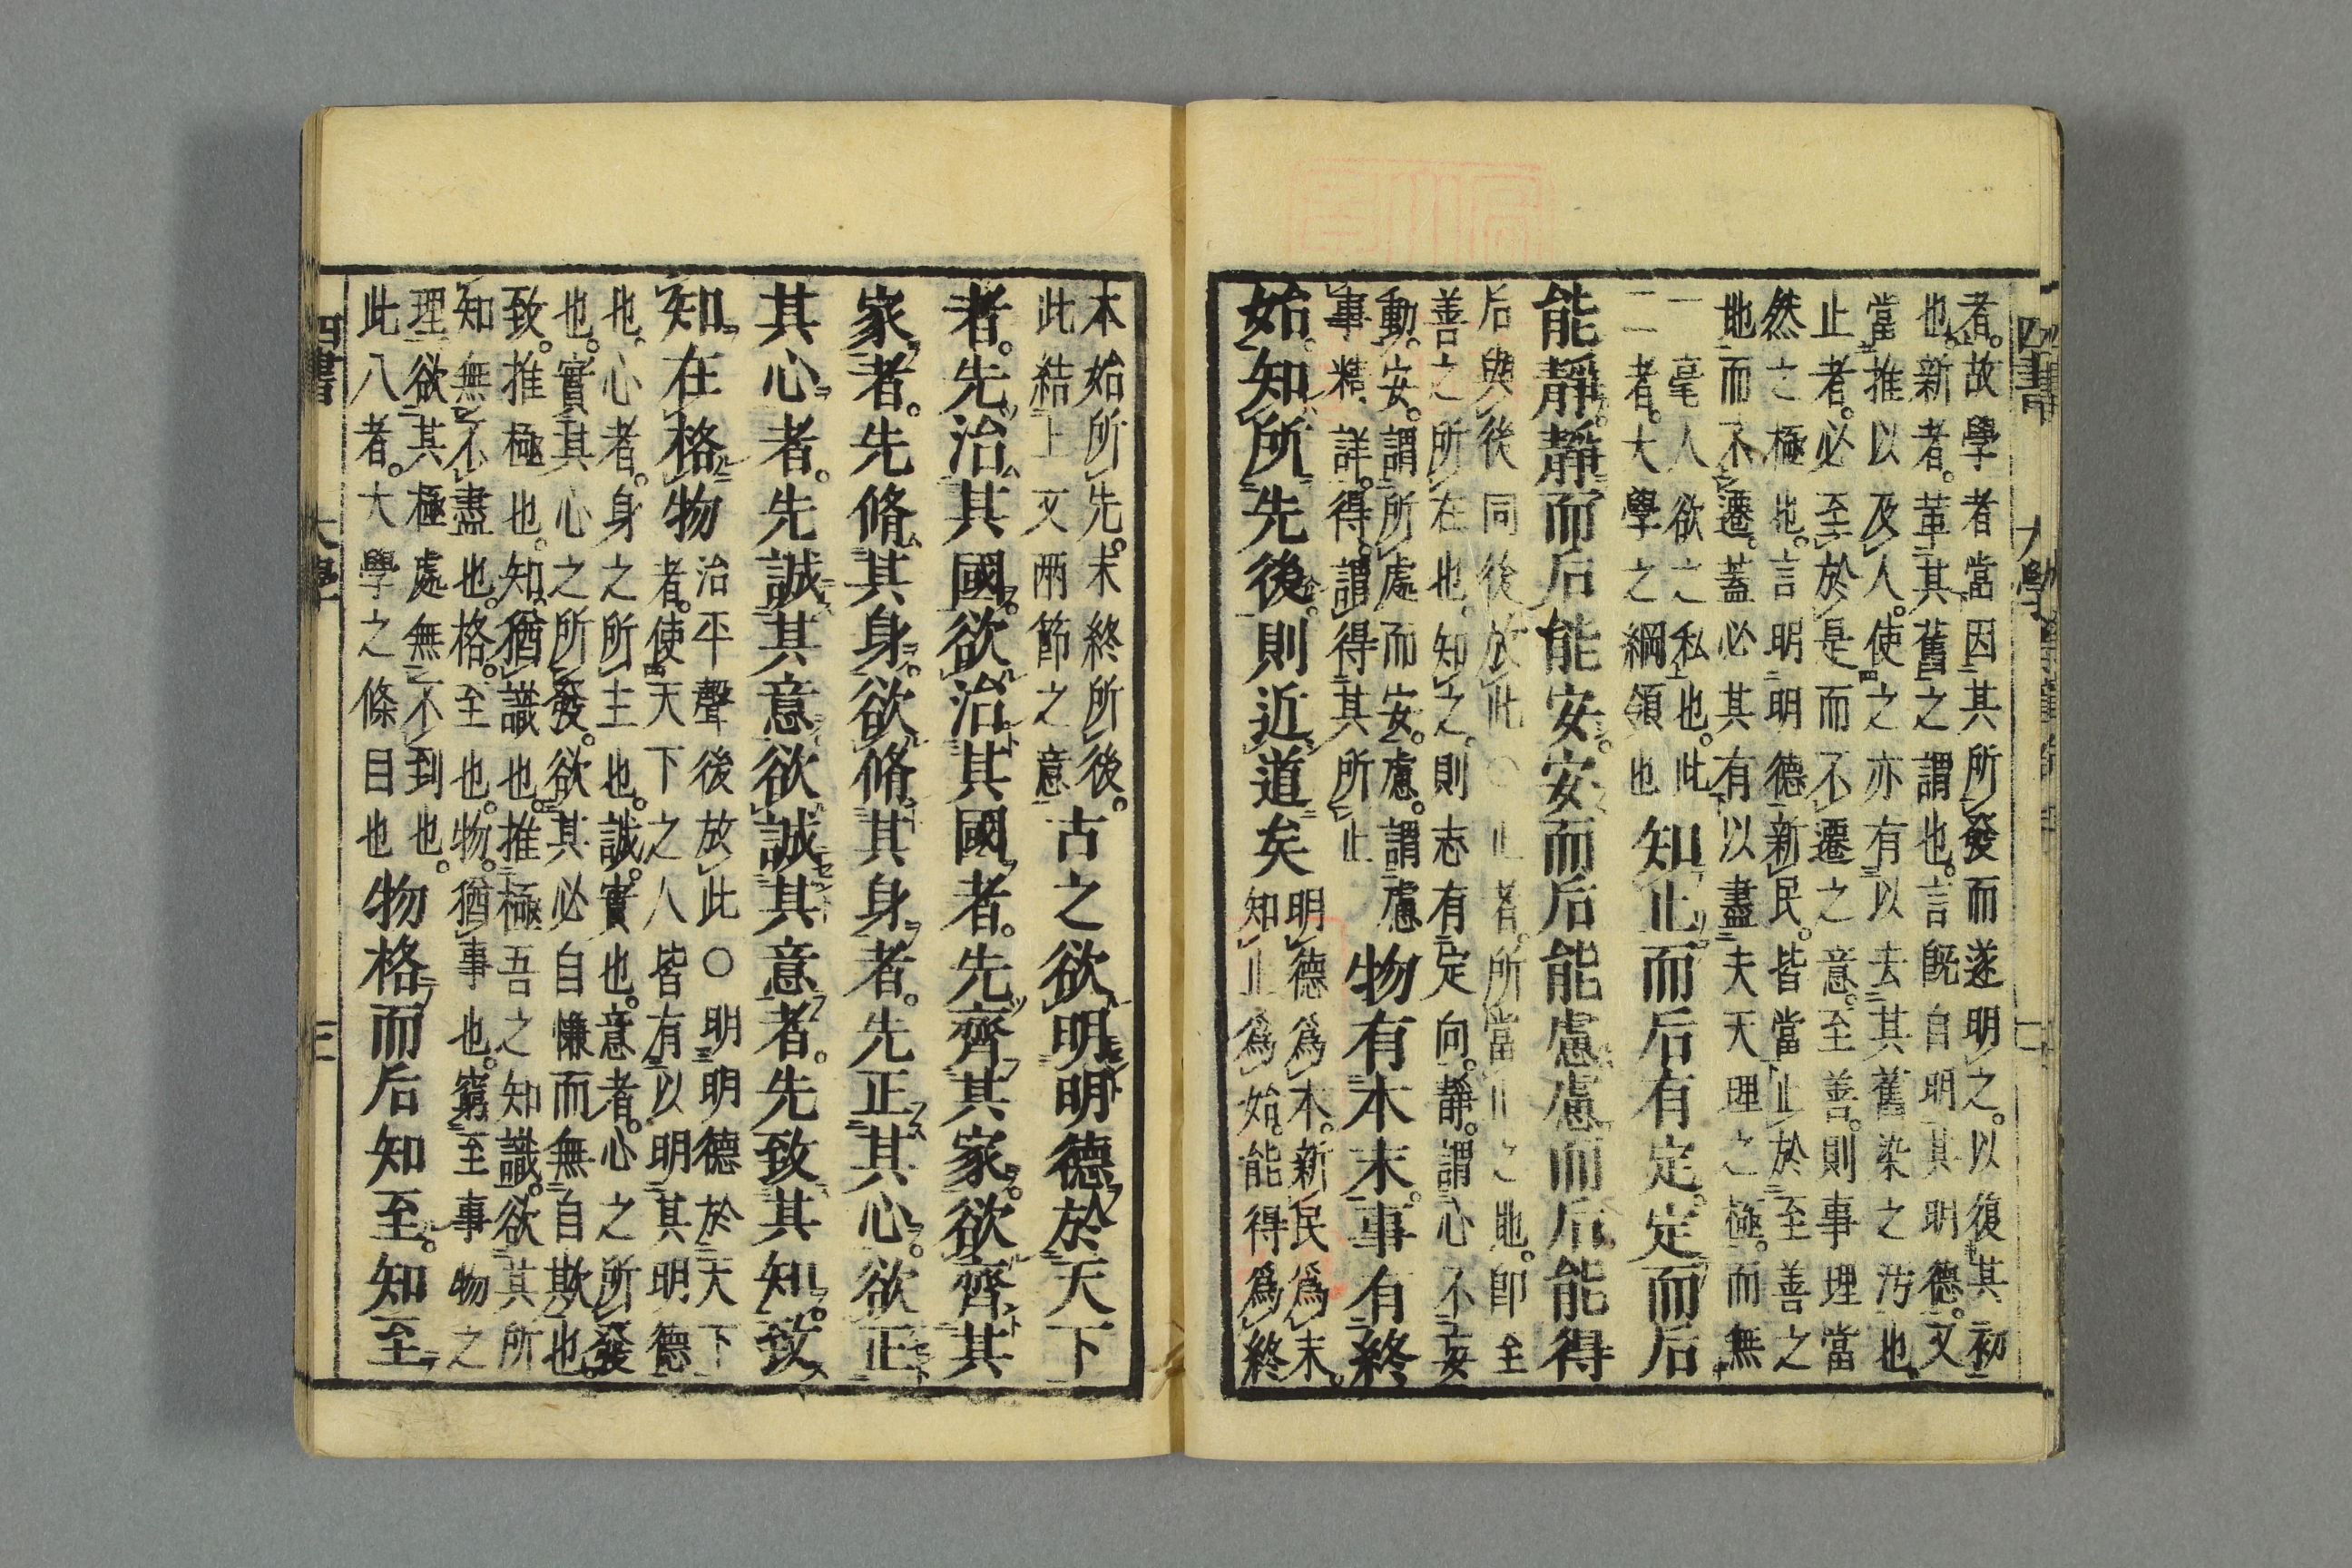 四書 大學 二
者。故學者當因其所發而遂明之。以復其初
也。新者。革其舊之謂也。言既自明其明德。又
當推以及人。使之亦有以去其舊染之汚也。
止者。必至於是而不遷之意。至善。則事理當
然之極也。言明明德新民。皆當止於至善之
地而不遷。蓋必其有以盡夫天理之極。而無
一毫人欲之私也。此
三者。大學之綱領也
知止而后有定。定而后
能靜。靜而后能安。安而后能慮。慮而后能得
后與後同後放此 ○止者。所當止之地。即至
善之所在也。知之。則志有定向。靜。謂心不妄
動。安。謂所處而安。慮。謂慮
事精詳。得。謂得其所止
物有本末。事有終
始。知所先後。則近道矣
明德爲本。新民爲末。
知止爲始。能得爲終
本始所先。末終所後。
此結上文兩節之意
古之欲明明德於天下
者。先治其國。欲治其國者。先齊其家。欲齊其
家者。先脩其身。欲脩其身者。先正其心。欲正
其心者。先誠其意。欲誠其意者。先致其知。致
知在格物
治平聲後放此○明明德於天下
者。使天下之人皆有以明其明德
也。心者。身之所主也。誠。實也。意者。心之所發
也。實其心之所發。欲其必自慊而無自欺也。
致。推極也。知。猶識也。推極吾之知識。欲其所
知無不盡也。格。至也。物。猶事也。窮至事物之
理。欲其極處無不到也。
此八者。大學之條目也
物格而后知至。知至
四書 大學 三